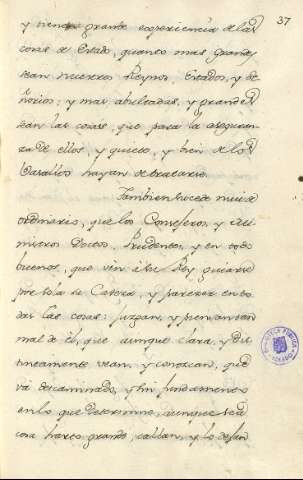 37
y tienen grande experiencia de las
cosas de Estado, quanto mas grandes
sean nuestros Reynos Estados, y Se-
ñorios, y mas abultadas, y grandes
sean las cosas, que para la seguri-
za de ellos, y quieto, y bien de los
Vasallos hayan de tratarse.
Tambien sucede mui de
ordinario, que los Consejeros, y Mi-
nistros Doctos, Prudentes, y en todo
buenos, que vén á los Rey guiarse
por sola su Cabeza, y parezer en to-
das las cosas: juzgan, y piensan tan
mal de él, que aunque clara, y dis-
tintamente vean, y conozcan, que
vá descaminado, y sin fundamento
en lo que determine, aunque sea
cosa harto grande, callan, y lo dejan
BIBLIOTECA PUBLICA
TOLEDO